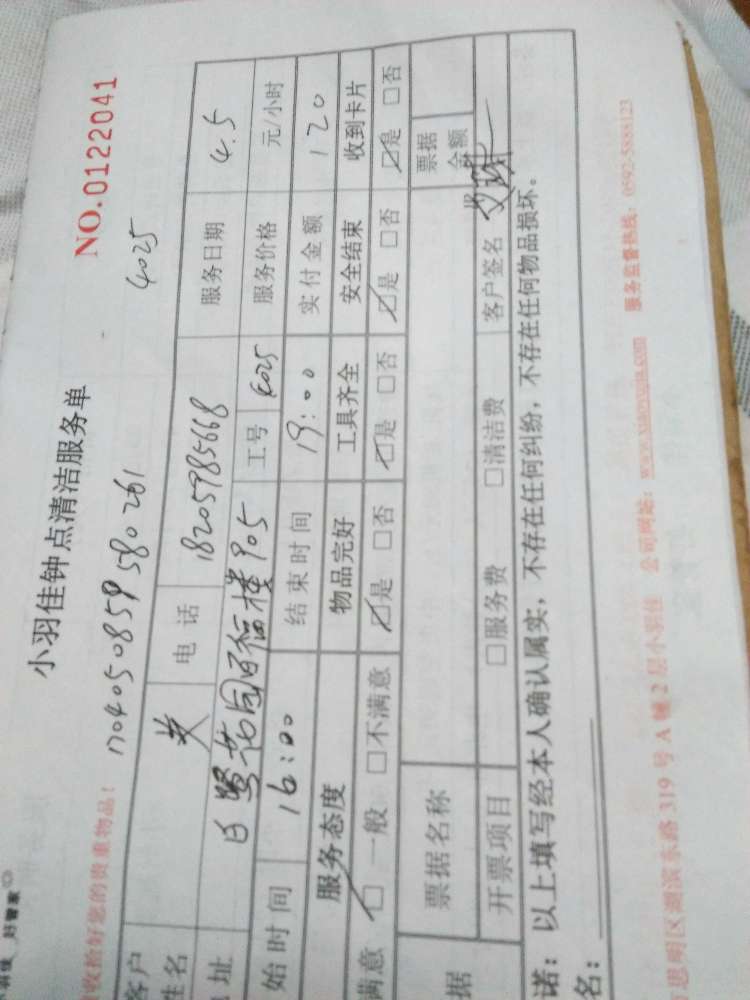 好管家
小羽佳钟点清洁服务单
NO.0122041
收拾好您的贵重物品!
1704050859580261
4025
客户
姓名
电话 18205985668 服务日期 4.5
址 百福楼905 工号 4025 服务价格 元/小时
始时间 16:00 结束时间 19:00 实付金额 120
服务态度 物品完好 工具齐全 安全结束 收到卡片
满意 ☑ 一般 □不满意 ☑是 □否 ☑是 □否 ☑是 □否 ☑是 □否
据 票据名称 票据金额
开票项目 □服务费 □清洁费 客户签名
诺:以上填写经本人确认属实,不存在任何纠纷,不存在任何物品损坏。
名:
思明区湖滨东路319号A幢2层小羽佳 公司网站:www.xiaoyujia.com 服务监督热线:0592-5888123